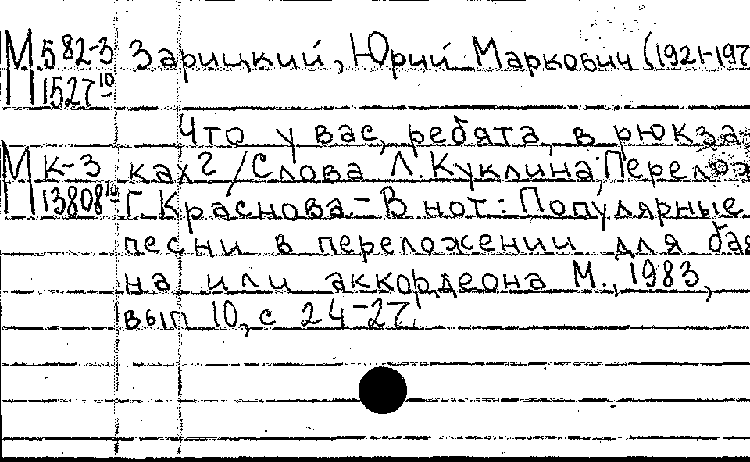 М 582-3 Зарицкий, Юрий Маркович (1921-197
1527 10
Что у вас, ребята, в рюкза-
М К-3 ках? /Слова Л. Куклина; Перелож
13808 10 Г. Краснова.- В нот.: Популярные
песни в переложении для бая
на или аккордеона М., 1983,
вып 10, с 24-27.